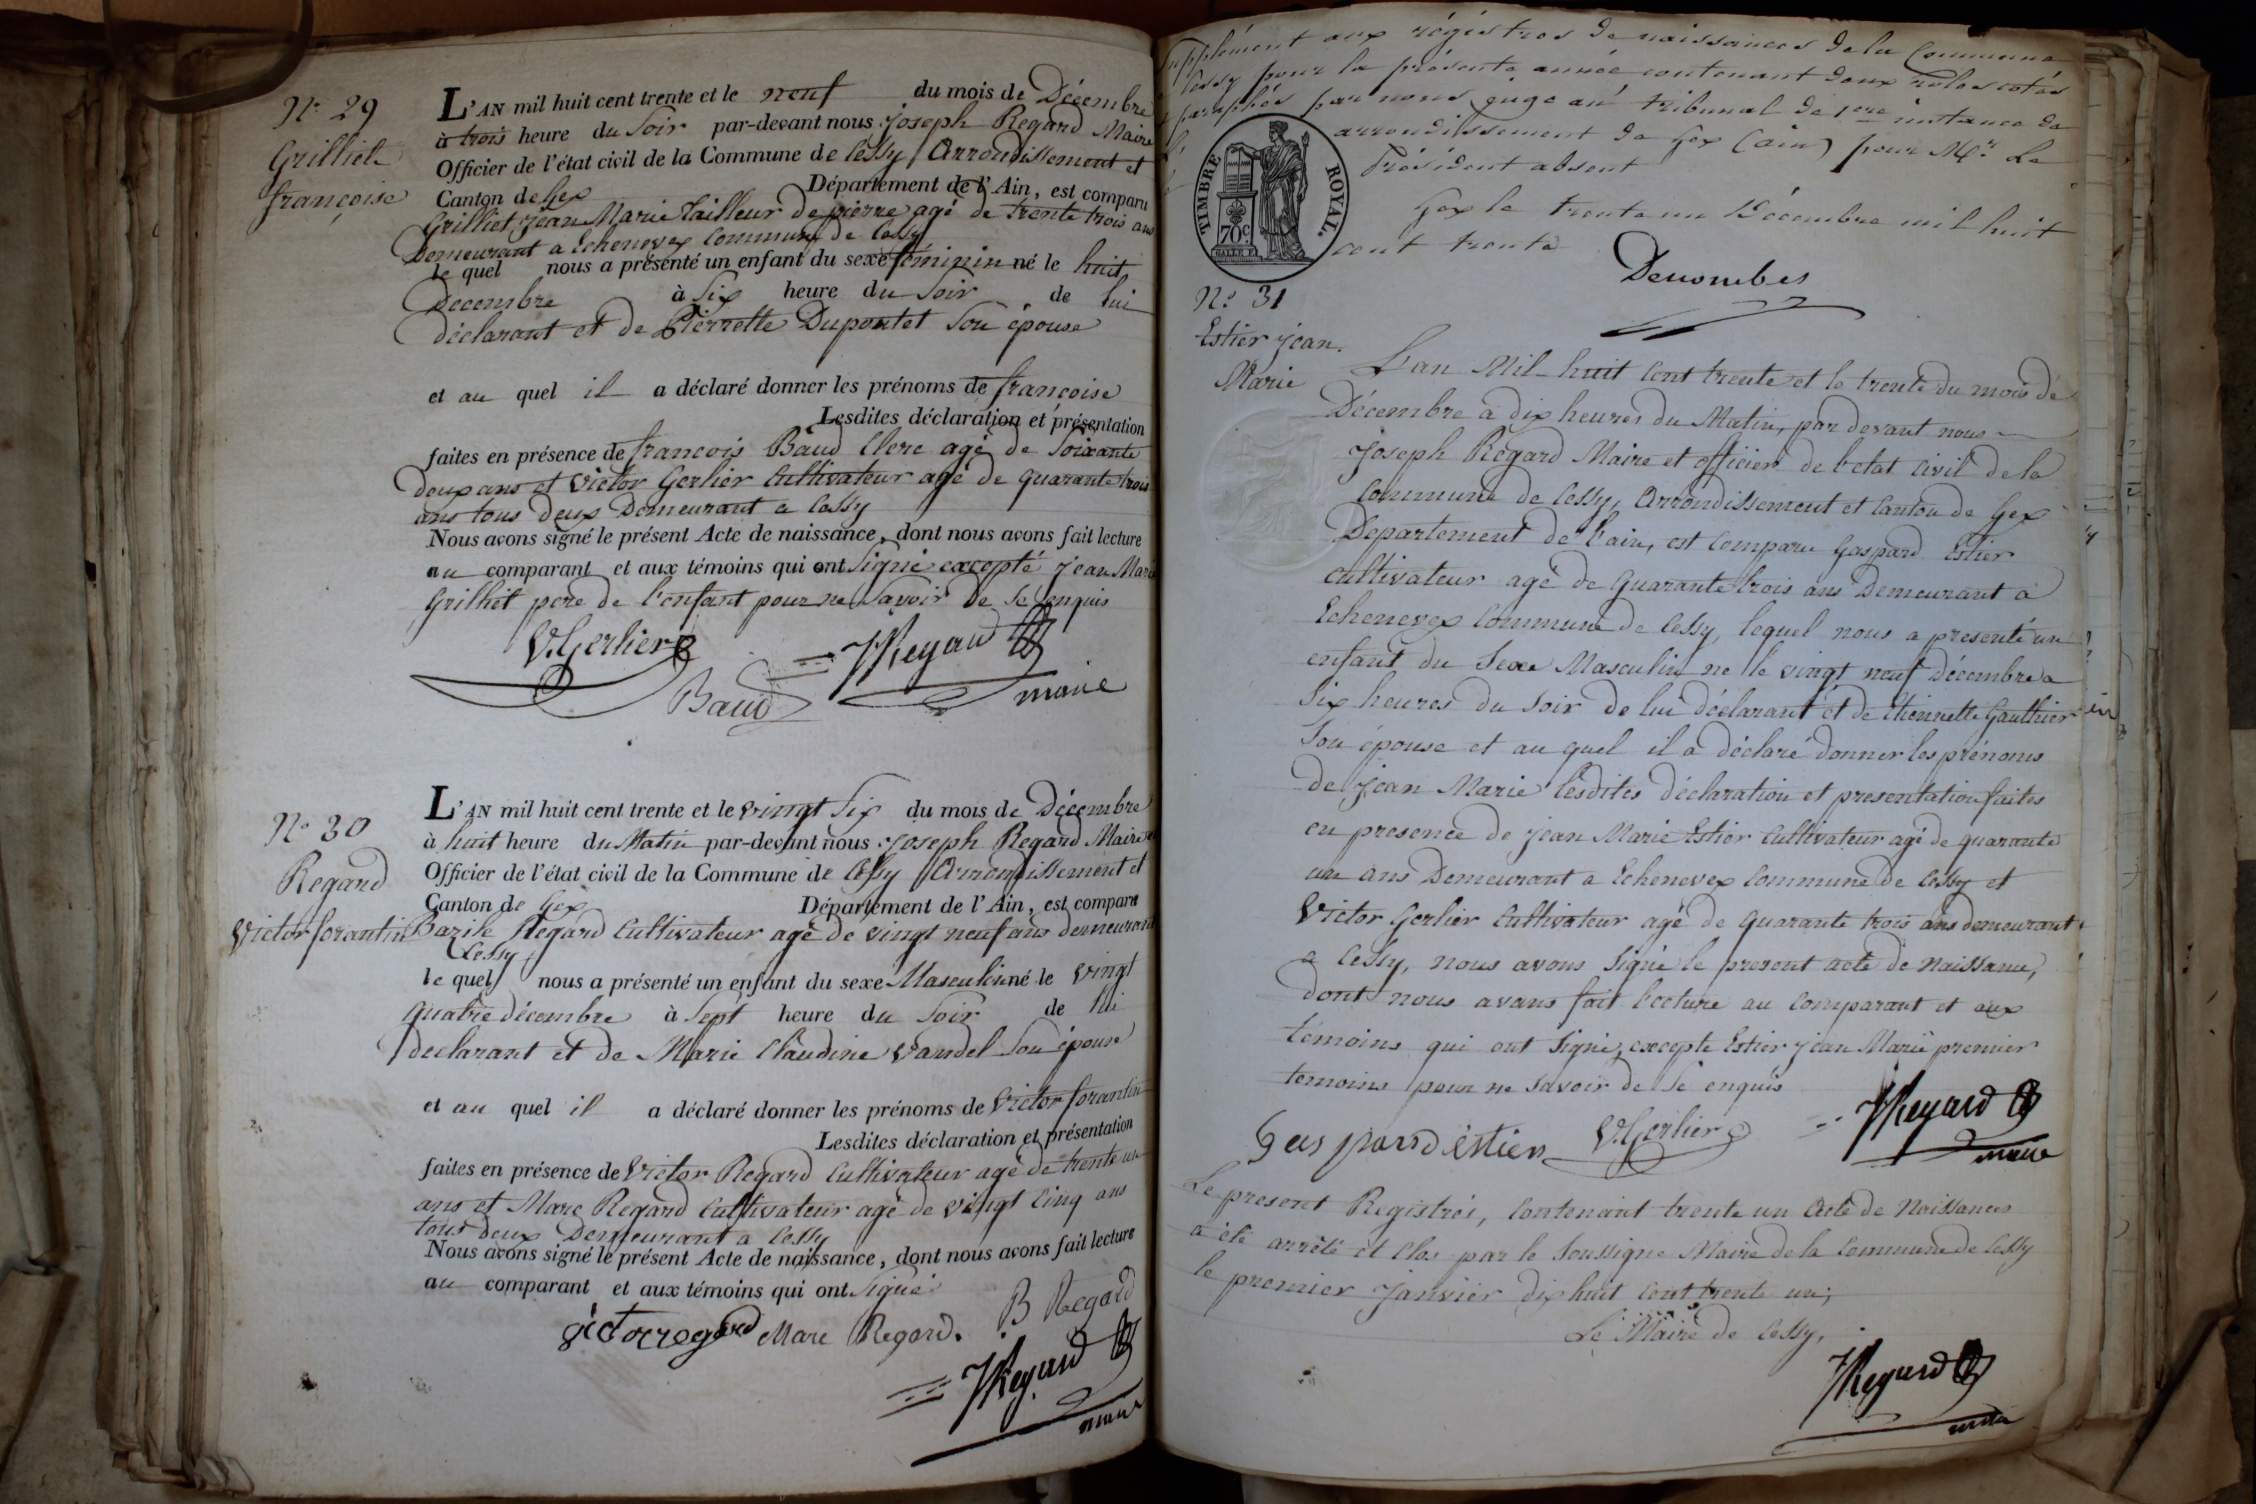 N.º 29
Grilliet
françoise
L'AN mil huit cent trente et le neuf du mois de Décembre
à trois heure du Soir par-devant nous Joseph Regard Maire
Officier de l'état civil de la Commune de Cessy Arrondissement et
Canton de Gex Département de l'Ain, est comparu
Grilliet Jean Marie tailleur de pierre agé de trente trois ans
Demeurant a Echenevex Commune de Cessy
le quel nous a présenté un enfant du sexe féminin né le huit
Decembre à Six heure du Soir de lui
déclarant et de Pierrette Dupontet Son épouse
et au quel il a déclaré donner les prénoms de françoise
Lesdites déclaration et présentation
faites en présence de francois Baud Clerc agé de Soixante
deux ans et Victor Gerlier Cultivateur agé de quarante trois
ans tous deux Demeurant a Cessy
Nous avons signé le présent Acte de naissance, dont nous avons fait lecture
au comparant et aux témoins qui ont Signé excepté jean Marie
Grilliet pere de l'enfant pour ne Savoir de Se enquis
V. Gerlier JRegard
Baud maire
N.º 30
Regard
Victor forantin
L'AN mil huit cent trente et le vingt Six du mois de Décembre
à huit heure du Matin par-devant nous Joseph Regard Maire et
Officier de l'état civil de la Commune de Cessy Arrondissement et
Canton de Gex Département de l'Ain, est comparu
Bazile Regard Cultivateur agé de vingt neuf ans demeurant
Cessy
le quel nous a présenté un enfant du sexe Masculin né le vingt
quatre décembre à Sept heure du Soir de lui
declarant et de Marie Claudine Vandel Son épouse
et au quel il a déclaré donner les prénoms de Victor forantin
Lesdites déclaration et présentation
faites en présence de Victor Regard Cultivateur agé de trente un
ans et Marc Regard Cultivateur agé de vingt cinq ans
tous deux Demeurant a Cessy
Nous avons signé le présent Acte de naissance, dont nous avons fait lecture
au comparant et aux témoins qui ont Signé
victor regard Marc Regard. B Regard
JRegard
maire
Supplément aux régistres de naissances de la Commune
Cessy pour la présente année contenant deux rôles cotés
paraphés par nous juge au tribunal de 1ere instance de
arrondissement de Gex (ain) pour Mr. Le
Président absent
Gex le trente un Décembre mil huit
cent trente
TIMBRE ROYAL.
70c
Denombes
N.º 31
Estier jean
Marie
L'an Mil huit Cent trente et le trente du mois de
Décembre a dix heures du Matin, par devant nous
Joseph Regard Maire et officier de l'etat civil de la
Commune de Cessy, Arrondissement et Canton de Gex
Departement de l'ain, est Comparu Gaspard Estier
cultivateur agé de Quarante trois ans Demeurant a
Echenevex Commune de Cessy, lequel nous a presenté un
enfant du Sexe Masculin ne le vingt neuf Décembre a
Six heures du Soir de lui déclarant et de Etiennette Gauthier
Son épouse et au quel il a déclaré donner les prénoms
de Jean Marie lesdites déclaration et presentation faites
en presence de jean Marie Estier Cultivateur agé de quarante
un ans Demeurant a Echenevex Commune de Cessy et
Victor Gerlier Cultivateur agé de quarante trois ans demeurant
a Cessy, nous avons Signé le present acte de Naissance,
dont nous avans fait lecture au Comparant et aux
témoins qui ont Signé, excepte Estier jean Marie premier
temoins pour ne Savoir de Se enquis
Gas pard éstier V. Gerlier JRegard
maire
Le present Registrés, Contenant trente un Acte de Naissances
a été arrêté et Clos par le Soussigné Maire de la Commune de Cessy
le premier Janvier dix huit Cent trente un,
Le Maire de Cessy,
JRegard
maire